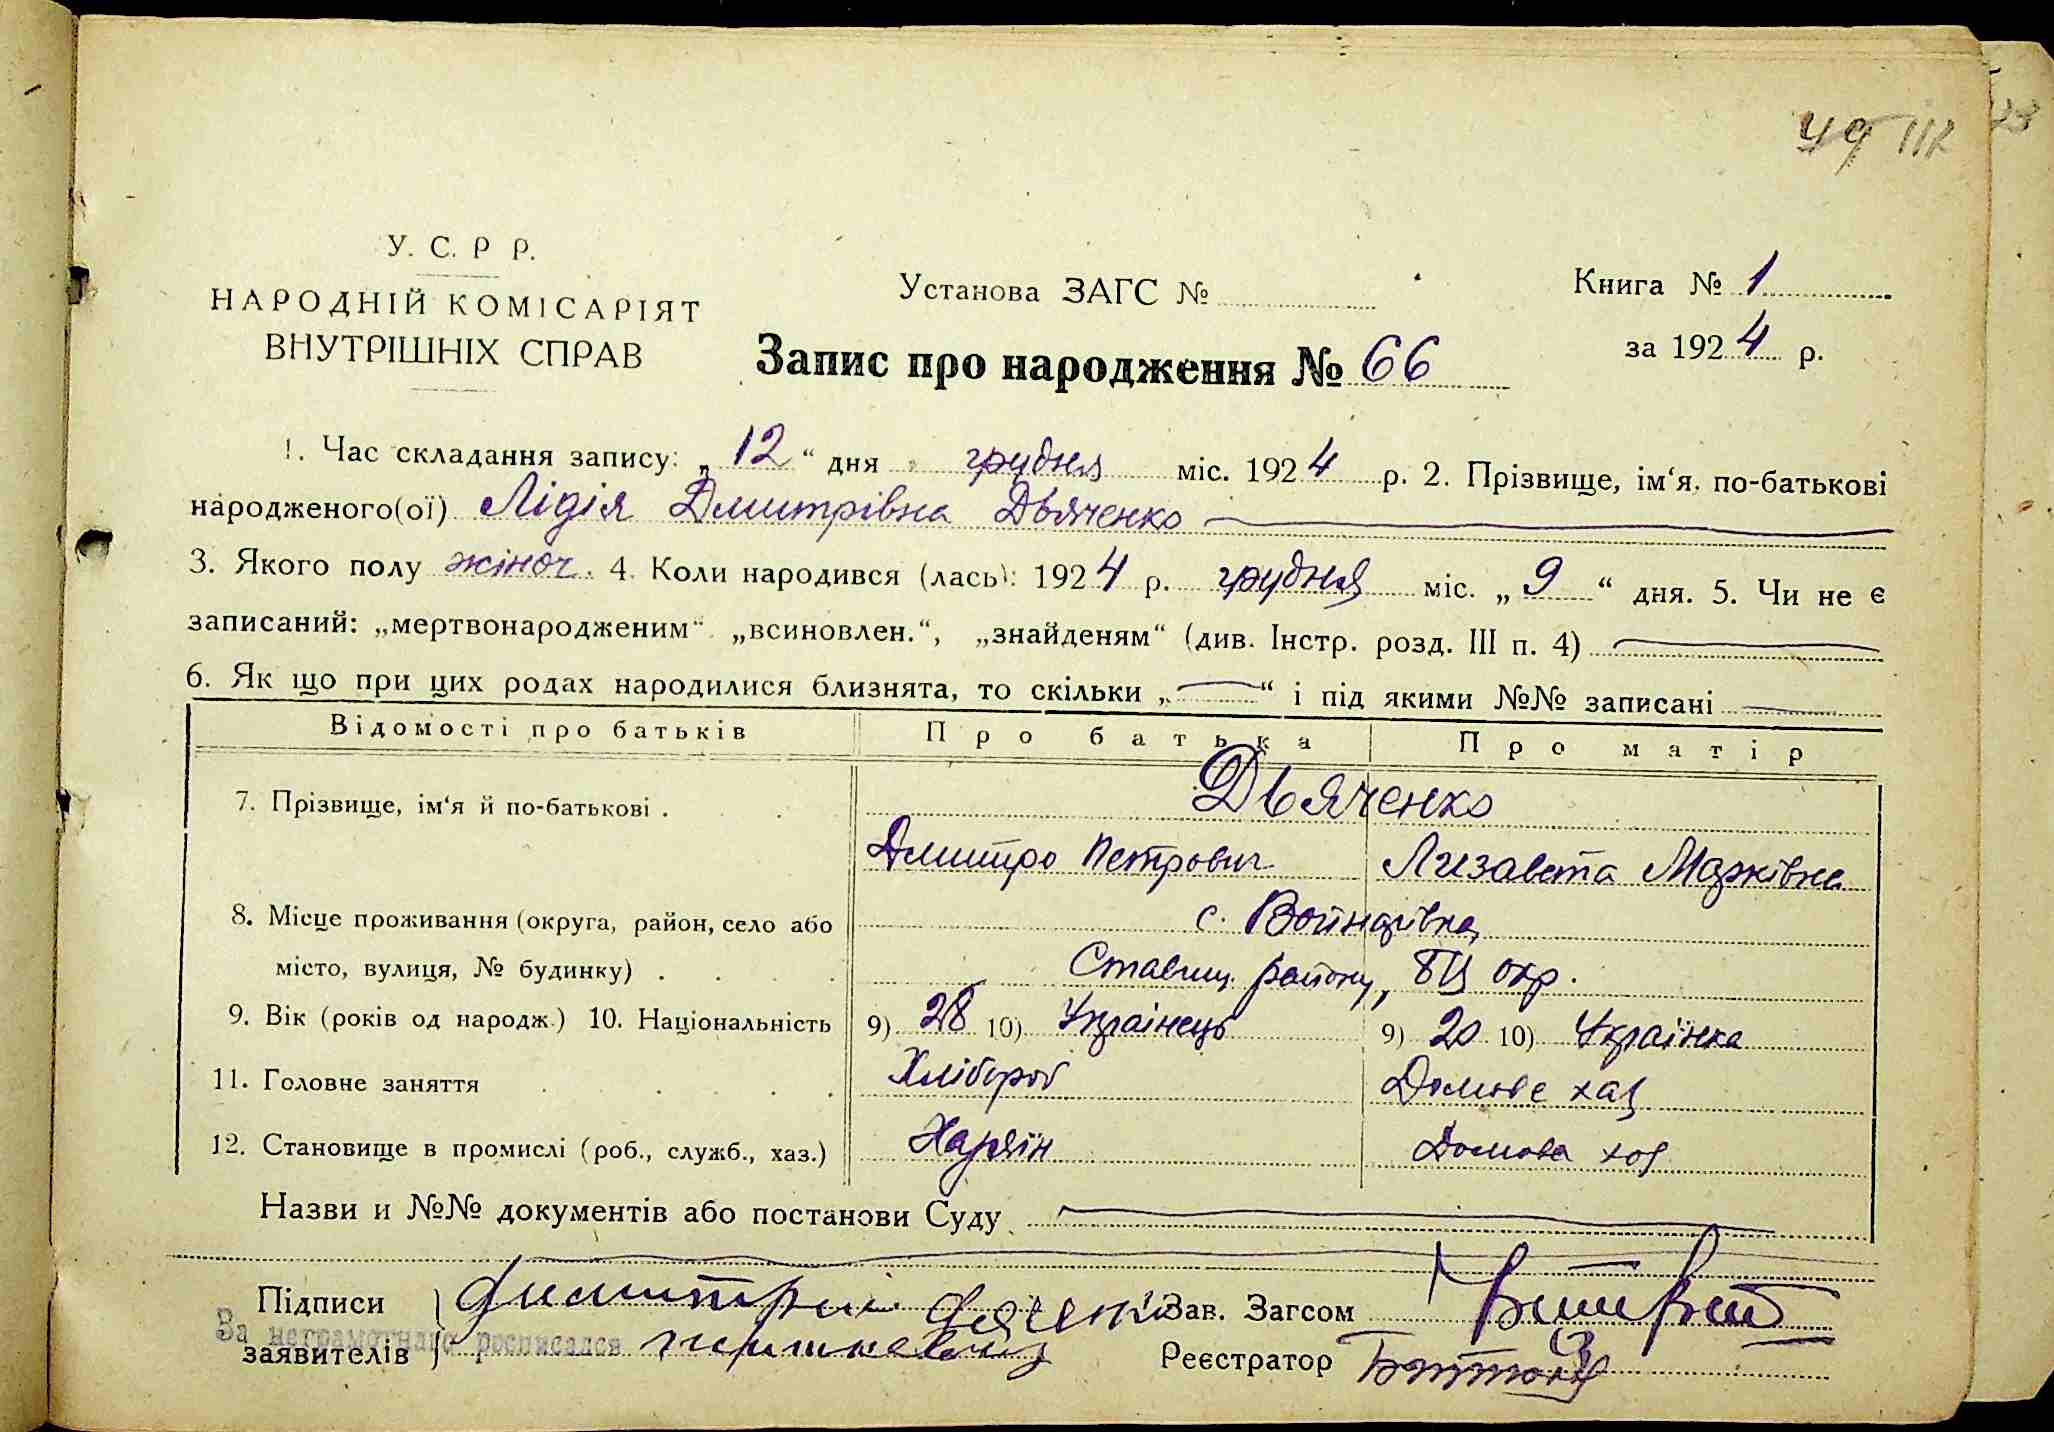 У. С. Р Р.
НАРОДНІЙ КОМІСАРІЯТ
ВНУТРІШНІХ СПРАВ
Установа ЗАГС №
Книга № 1
за 1924 р.
Запис про народження № 66
1. Час складання запису: „12“ дня грудня міс. 1924 р. 2. Прізвище, ім‘я, по-батькові
народженого(ої) Лідія Дмитрівна Дьяченко
3. Якого полу жіноч. 4. Коли народився (лась): 1924 р. грудня міс. „9“ дня. 5. Чи не є
записаний: „мертвонародженим“ „всиновлен.“, „знайденям“ (див. Інстр. розд. III п. 4)
6. Як що при цих родах народилися близнята, то скільки „ “ і під якими №№ записані
Відомості про батьків Про батька Про матір
7. Прізвище, ім‘я й по-батькові . Дьяченко
Дмитро Петрович Лизавета Марківна
8. Місце проживання (округа, район, село або с.
місто, вулиця, № будинку) . Ставищ. району, БЦ окр.
9. Вік (років од народж.) 10. Національність 9) 28 10) Українець 9) 20 10) Українка
11. Головне заняття Хлібороб Домове хаз
12. Становище в промислі (роб., служб., хаз.) Хазяїн Домова хоз
Назви и №№ документів або постанови Суду
Підписи Димитрий Зав. Загсом
заявителів За неграмотнаго росписался Реєстратор